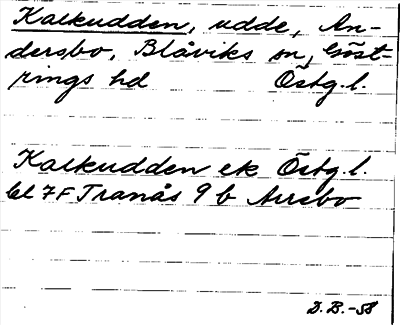 Kalkudden, udde, An-
dersbo, Blåviks sn, Göst-
rings hd Östg.l.
Kalkudden ek Östg.l.
bl 7F Tranås 9 b Arrsbo
D.B.-58